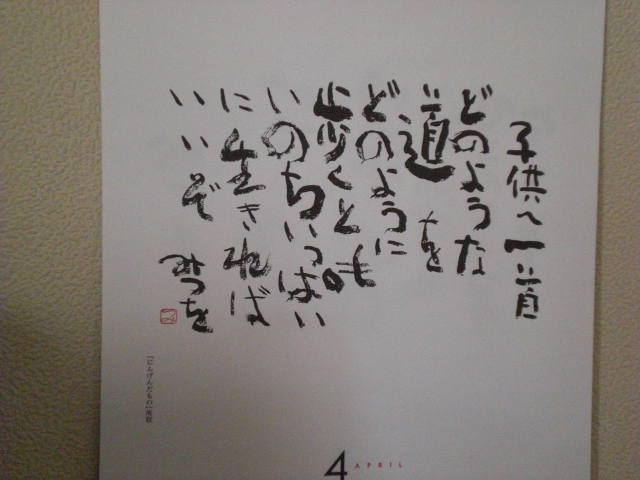 子供へ一首
どのような
道を
どのように
歩くとも
いのちいっぱい
に生きれば
いいぞ みつを
「にんげんだもの」所収
4 APRIL